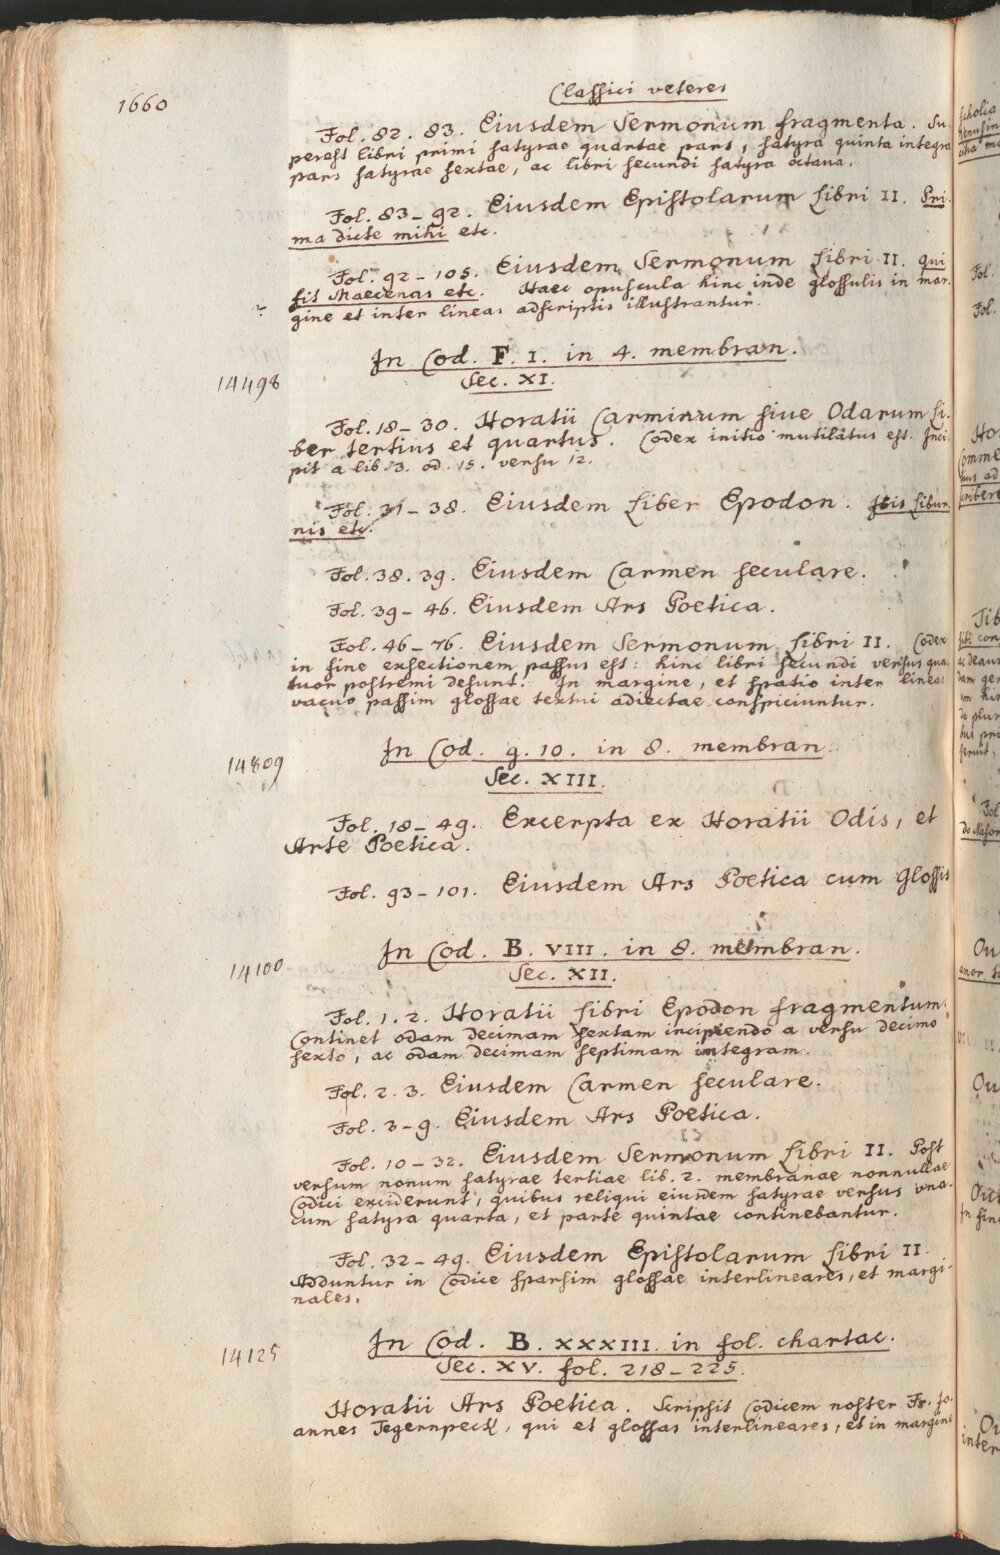 1660
Classici veteres
Fol. 82. 83. Eiusdem Sermonum fragmenta. Su-
perest libri primi satyrae quartae pars, satyra quinta integra
pars satyrae sextae, ac libri secundi satyra octava.
Fol. 83–92. Eiusdem Epistolarum Libri II. Pri-
ma dicte mihi etc.
Fol. 92–105. Eiusdem Sermonum Libri II. qui
fit Maecenas etc. Haec opuscula hinc inde glossulis in mar-
gine et inter lineas adscriptis illustrantur.
14498
In Cod. F. I. in 4. membran.
Sec. XI.
Fol. 18–30. Horatii Carminum sive Odarum Li-
ber tertius et quartus. Codex initio mutilatus est. Inci-
pit a lib. 3. od. 15. versu 12.
Fol. 31–38. Eiusdem Liber Epodon. Ibis Libur-
nis etc.
Fol. 38. 39. Eiusdem Carmen seculare.
Fol. 39–46. Eiusdem Ars Poetica.
Fol. 46–76. Eiusdem Sermonum Libri II. Codex
in fine exsectionem passus est: hinc libri secundi versus qua-
tuor postremi desunt. In margine, et spatio inter lineas
vacuo passim glossae textui adiectae conspiciuntur.
14809
In Cod. g. 10. in 8. membran.
Sec. XIII.
Fol. 18–49. Excerpta ex Horatii Odis, et
Arte Poetica.
Fol. 93–101. Eiusdem Ars Poetica cum Glossis
14100
In Cod. B. VIII. in 8. membran.
Sec. XII.
Fol. 1. 2. Horatii Libri Epodon fragmentum.
Continet odam decimam sextam incipiendo a versu decimo
sexto, ac odam decimam septimam integram.
Fol. 2. 3. Eiusdem Carmen seculare.
Fol. 3–9. Eiusdem Ars Poetica.
Fol. 10–32. Eiusdem Sermonum Libri II. Post
versum nonum satyrae tertiae lib. 2. membranae nonnullae
Codici exciderunt, quibus reliqui eiusdem satyrae versus una
cum satyra quarta, et parte quintae continebantur.
Fol. 32–49. Eiusdem Epistolarum Libri II.
Adduntur in Codice sparsim glossae interlineares, et margi-
nales.
14125
In Cod. B. XXXIII. in fol. chartac.
Sec. XV. fol. 218–225.
Horatii Ars Poetica. Scripsit Codicem noster Fr. Jo-
annes Tegernpeck, qui et glossas interlineares, et in margine